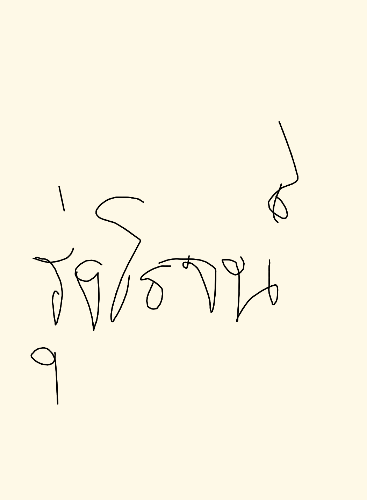 รุ่งโรจน์